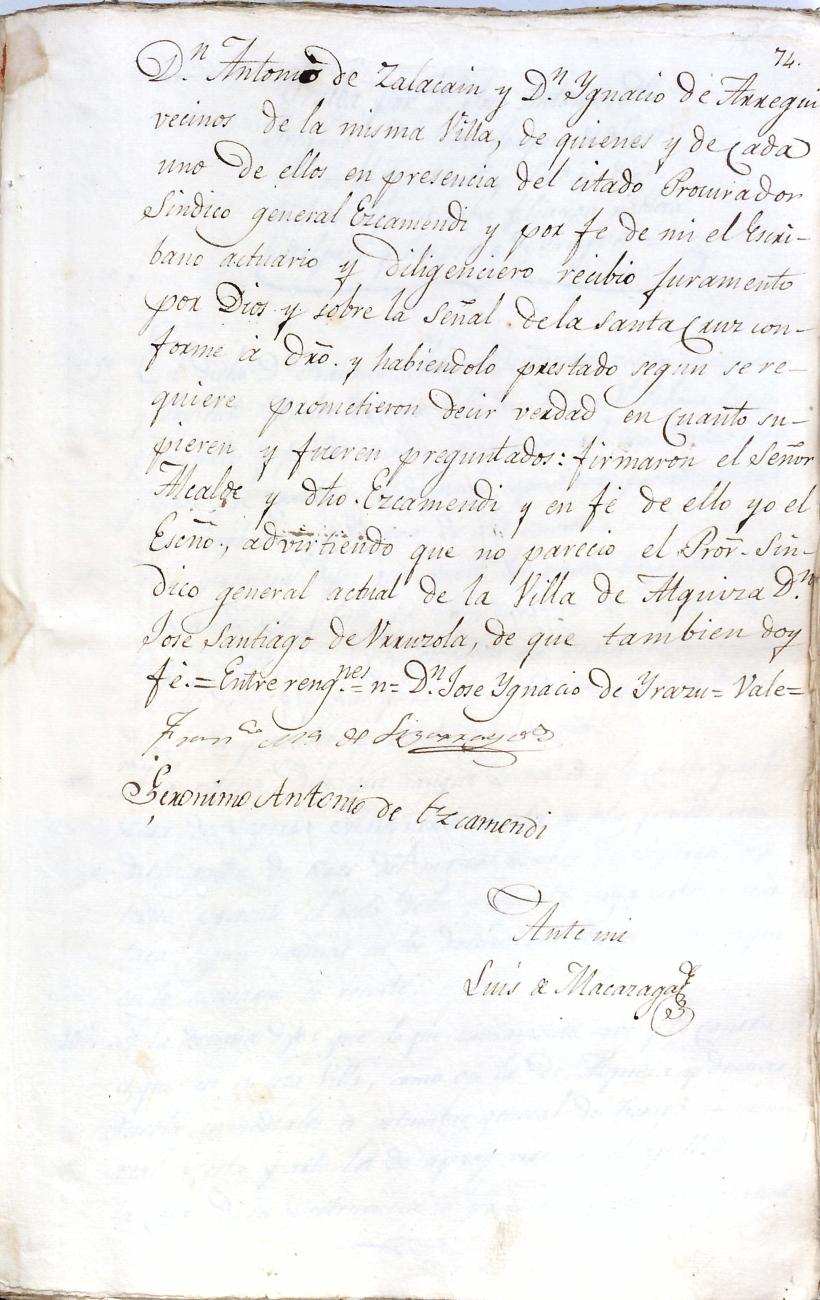 74.
Dn. Antonio de Zalacain y Dn. Ygnacio de Arregui
vecinos de la misma Villa, de quienes y de Cada
uno de ellos en presencia del citado Procurador
Sindico general Ezcamendi y por fe de mi el Escri-
bano actuario y diligenciero recibio juramento
por Dios y sobre la Señal de la Santa Cruz con-
forme á dró. y habiendolo prestado segun se re-
quiere prometieron decir verdad en Cuanto su-
pieren y fueren preguntados: firmaron el Señor
Alcalde y dho. Ezcamendi y en fé de ello yo el
Escño., advirtiendo que no parecio el Pror. Sin-
dico general actual de la Villa de Alquiza Dn.
Jose Santiago de Urruzola, de que tambien doy
fé.=Entrerengnes.=n=Dn. Jose Ygnacio de Yrazu=Vale=
Franco. de Lizarraga
Geronimo Antonio de Ezcamendi
Ante mi
Luis de Macazaga